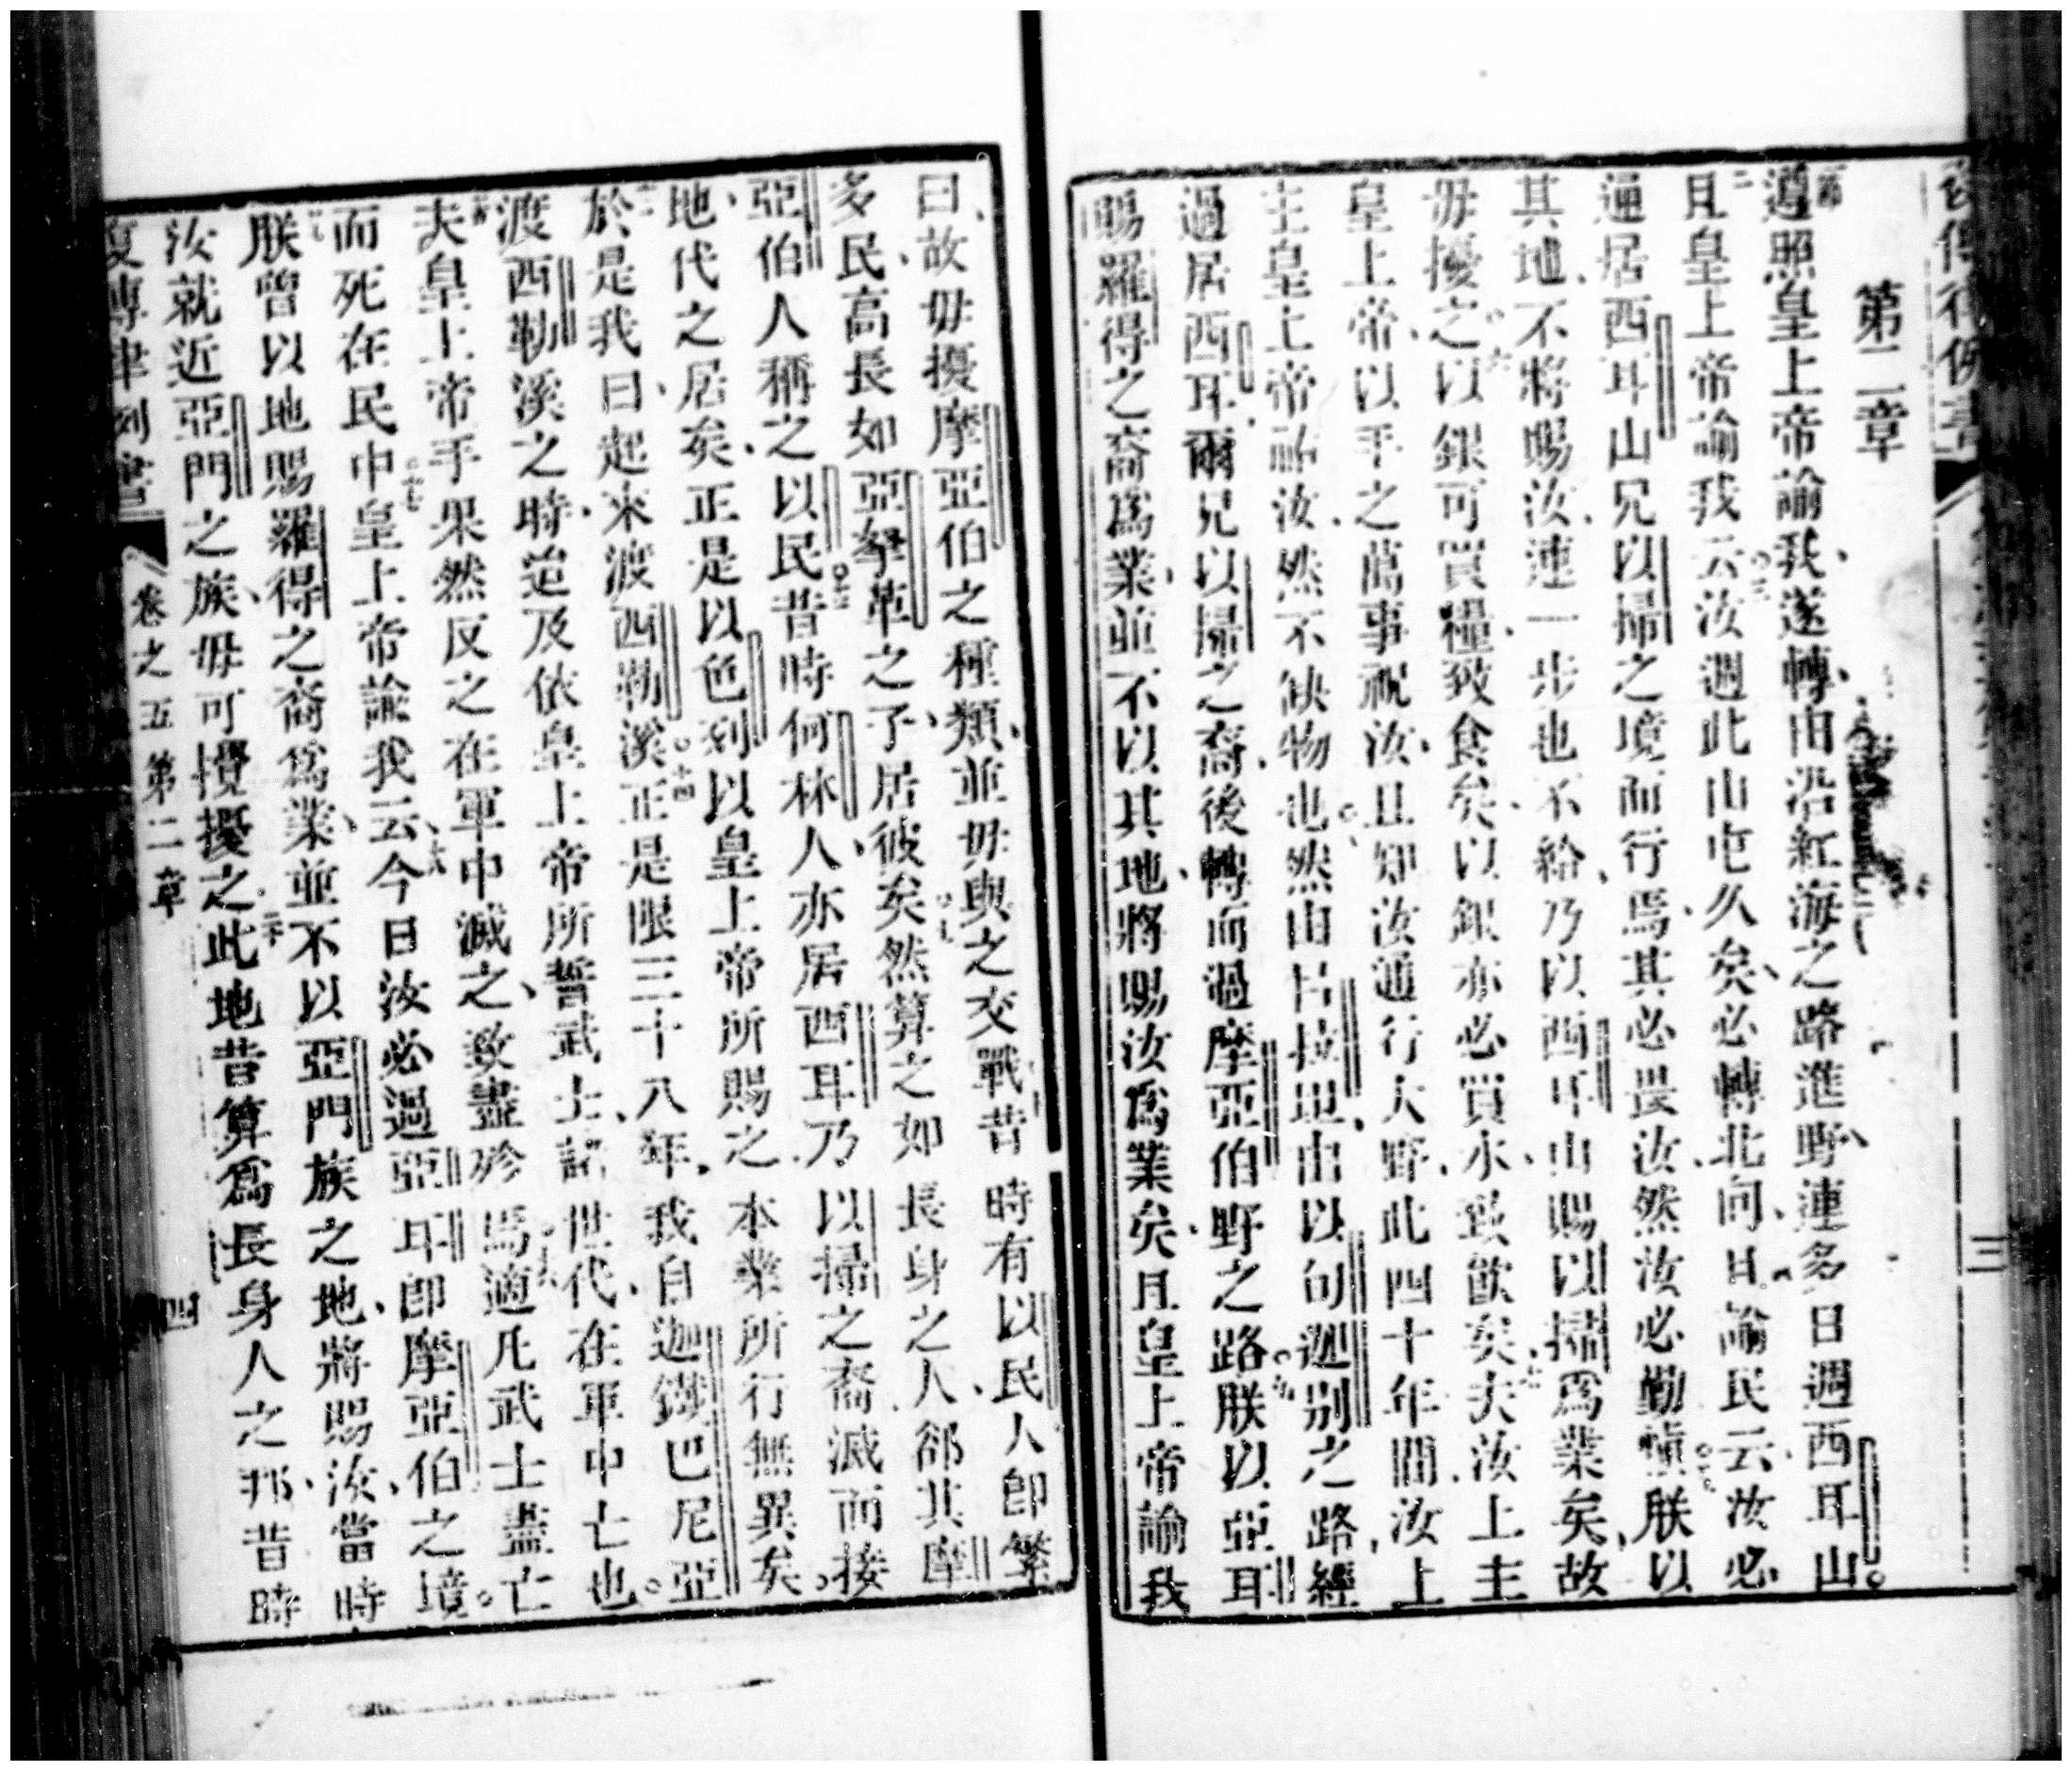 復傳律例書
三
第二章
遵照皇上帝諭我、遂轉、由沿紅海之路進野、連多日週西耳山。
且皇上帝諭我云汝週此山屯久矣、必轉北向、日諭民云汝必
逼居西耳山兄以掃之境而行焉、其必畏汝、然汝必勤慎朕以
其地、不將賜汝、連一步也不給、乃以西耳山賜以掃爲業矣、故
毋擾之以銀可買糧、致食矣、以銀亦必買水、致飲矣、夫汝上主
皇上帝、以手之萬事祝汝、且知汝通行大野、此四十年間、汝上
主皇上帝祐汝、然不缺物也然由呂拉坦、由以旬迦别之路、經
過居西耳、爾兄以掃之裔、後轉而過摩亞伯野之路朕以亞耳
賜羅得之裔爲業、並不以其地、將賜汝爲業矣、且皇上帝諭我
曰、故毋擾摩亞伯之種類、並毋與之交戰昔時有以民人卽繁
多民、高長如亞拏革之子、居彼矣然算之如長身之人、郤其摩
亞伯人稱之以民昔時何林人、亦居西耳乃以掃之裔滅而接
地、代之居矣、正是以色列以皇上帝所賜之本業所行無異矣。
於是我曰、起來渡西勒溪正是限三十八年、我自迦鐵巴尼亞
渡西勒溪之時、迨及依皇上帝所誓武士、諸世代、在軍中亡也。
夫皇上帝手果然反之在軍中滅之、致盡殄馬適凡武士盡亡
而死在民中皇上帝諭我云、今日汝必過亞耳卽摩亞伯之境。
朕曾以地賜羅得之裔爲業、並不以亞門族之地、將賜汝、當時
汝就近亞門之族、毋可攪擾之此地昔算爲長身人之邦、昔時
復傳律例書
卷之五第二章
四